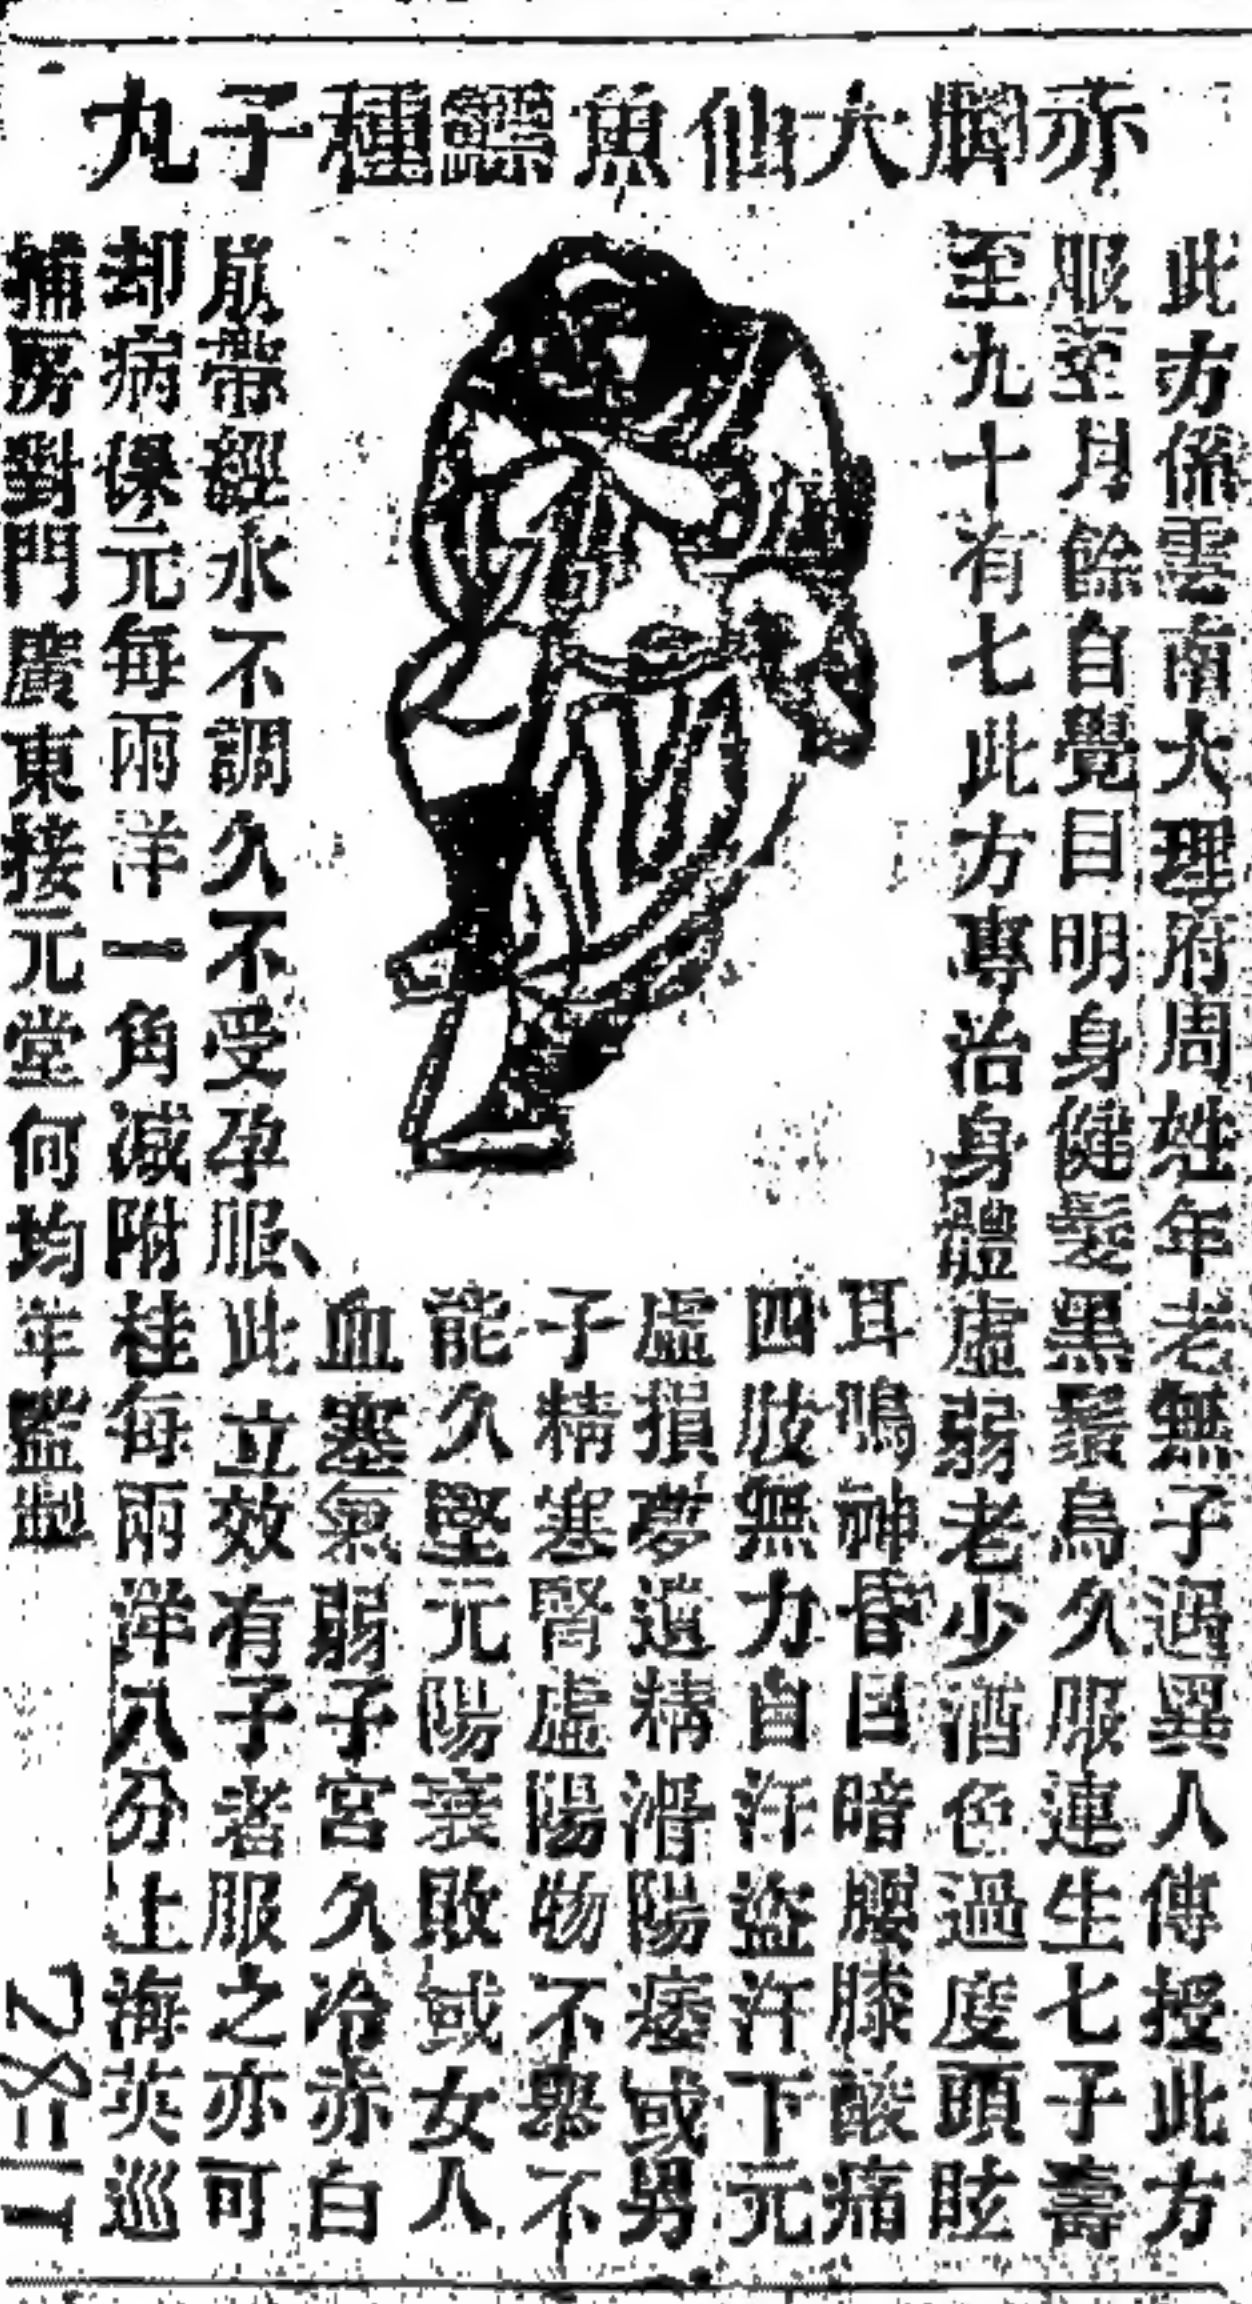 赤脚大仙魚鰾種子丸
此方係雲南大理府周姓年老無子遇異人傳授此方
服至月餘自覺目明身健髮黑鬚烏久服連生七子壽
至九十有七此方專治身體虛弱老少酒色過度頭眩
耳鳴神昏目暗腰膝酸痛
四肢無力自汗盜汗下元
虛損夢遺精滑陽痿或男
子精寒腎虛陽物不舉不
能久堅元陽衰敗或女人
血塞氣弱子宮久冷赤白
崩帶經水不調久不受孕服此立效有子者服之亦可
却病保元每兩洋一角減附桂每兩洋八分上海英巡
捕房對門廣東接元堂何均年監製